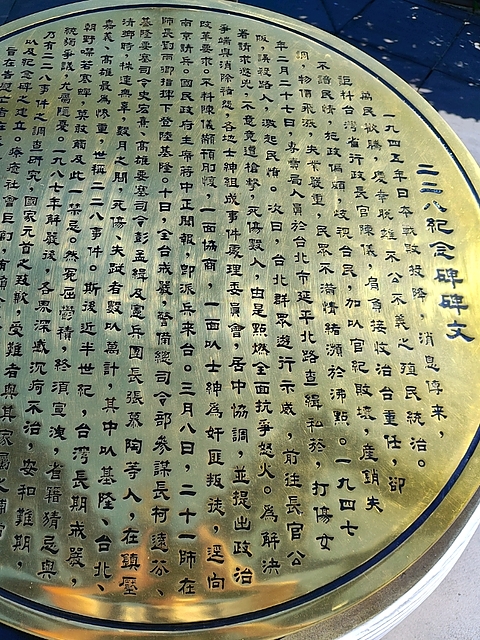 二二八紀念碑碑文
一九四五年日本戰敗投降,消息傳來,
萬民歡騰,慶幸脫離不公不義之殖民統治。
詎料台灣省行政長官陳儀,肩負接收治台重任,卻
不諳民情,施政偏頗,歧視台民,加以官紀敗壞,產銷失
調,物價飛漲,失業嚴重,民眾不滿情緒瀕於沸點。一九四七
年二月二十七日,專賣局人員於台北市延平北路查緝私菸,打傷女
販,誤殺路人,激起民憤。次日,台北群眾遊行示威,前往長官公
署請求懲兇,不意竟遭槍擊,死傷數人,由是點燃全面抗爭怒火。為解決
爭端與消除積怨,各地士紳組成事件處理委員會,居中協調,並提出政治
改革要求。不料陳儀顢頇剛愎,一面協商,一面以士紳為奸匪叛徒,逕向
南京請兵。國民政府主席蔣中正聞報,即派兵來台。三月八日,二十一師在
師長劉雨卿指揮下登陸基隆;十日,全台戒嚴。警備總司令部參謀長柯遠芬、
基隆要塞司令史宏熹、高雄要塞司令彭孟緝及憲兵團長張慕陶等人,在鎮壓
清鄉時,株連無辜,數月之間,死傷、失蹤者數以萬計,其中以基隆、台北、
嘉義、高雄最為慘重,世稱二二八事件。斯後近半世紀,台灣長期戒嚴,
朝野噤若寒蟬,莫敢觸及此一禁忌。然冤屈鬱積,終須宣洩,省籍猜忌與
統獨爭議,尤屬隱憂。一九八七年解嚴後,各界深感沉痾不治,安和難期,
乃有二二八事件之調查研究,國家元首之致歉,受難者與其家屬之補償
以及紀念碑之建立。療癒社會巨創,有賴
旨在告慰亡者在